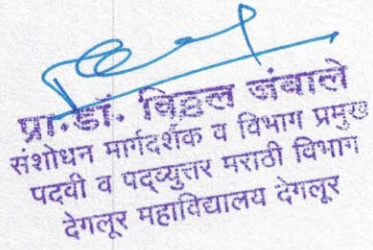 प्रा.डॉ. विठ्ठल जंबाले
संशोधन मार्गदर्शक व विभाग प्रमुख
पदवी व पदव्युत्तर मराठी विभाग
देगलूर महाविद्यालय देगलूर